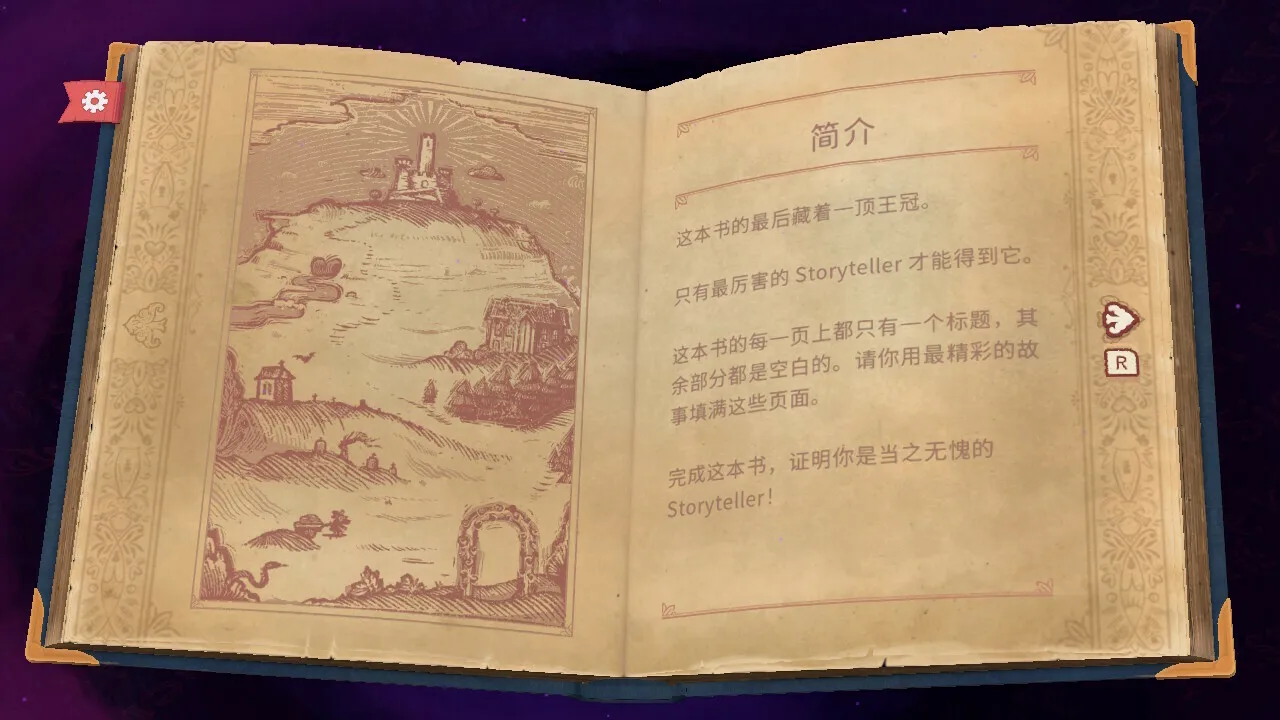 简介
这本书的最后藏着一顶王冠。
只有最厉害的 Storyteller 才能得到它。
这本书的每一页上都只有一个标题，其
余部分都是空白的。请你用最精彩的故
事填满这些页面。
完成这本书，证明你是当之无愧的
Storyteller！
R